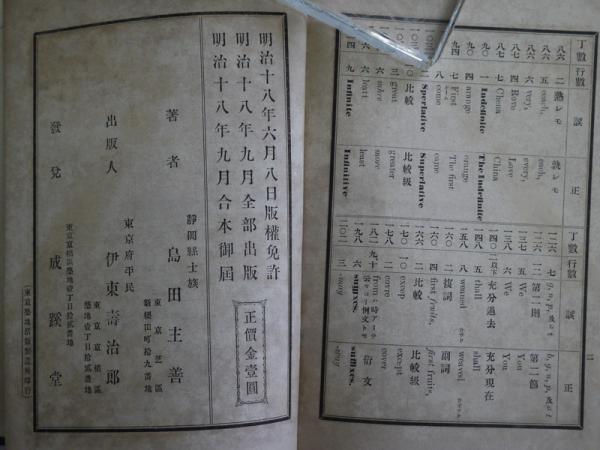 丁數
行數
誤
正
八六
二
孰レモ
熟レモ
八六
五
each,
each,
八六
六
very,
every,
八七
四
Rove
Love
八七
七
Chena
China
九〇
一
Indefinite
The Indefinite
九一
四
arange
orange
九四
七
First
The first
八
come
came
二
Sperlative
Superlative
比較
比較級
三
great
greater
六
more
六
leatt
least
九
Infinite
Infinitive
丁數
行數
誤
正
一二六
七
一二六
二
第二則
第二節
五
We
You
一三八
六
We
You
一四〇
一以下
充分過去
充分現在
五
thall
shall
一五八
八
weaved
weavel
一六〇
二
複詞
副詞
四
first fruits,
first fruits,
一六六
二
比較
比較級
一七〇
一
excep
except
二
corre
cover
俗文
六
sufixes.
suffixes.
三
二
明治十八年六月八日版權免許
明治十八年九月全部出版
明治十八年九月合本御屆
正價金壹圓
靜岡縣士族
著者 島田主善
東京芝區
新櫻田町拾九番地
東京府平民
出版人 伊東壽治郎
東京京橋區
築地壹丁目拾貳番地
發兌 成蹊堂
東京京橋區築地壹丁目拾貳番地